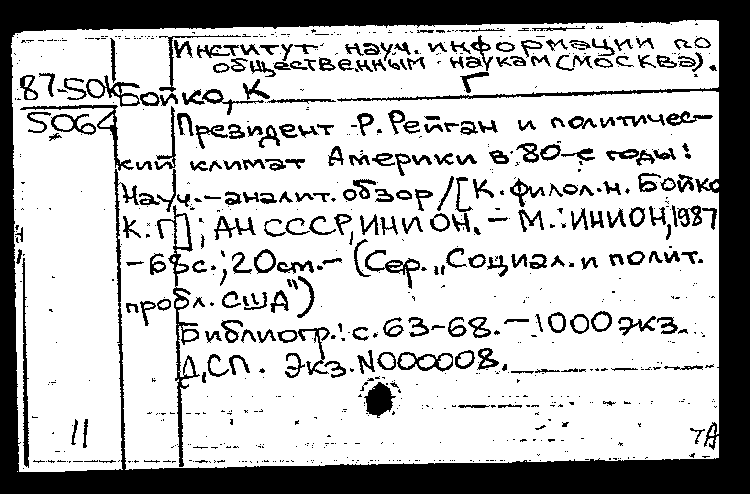 Институт науч. информации по
общественным наукам (Москва).
87-50k Бойко, К Г
5064 Президент Р. Рейган и политичес-
кий климат Америки в 80-е годы:
Науч.-аналит. обзор / [К. филол. н. Бойко
К. Г]; АН СССР, ИНИОН. - М.: ИНИОН, 1987
-68с.; 20см.- (Сер. „Социал. и полит.
пробл. США")
Библиогр.: с. 63-68. - 1000 экз.
ДСП. Экз. N000008.
11
ТА